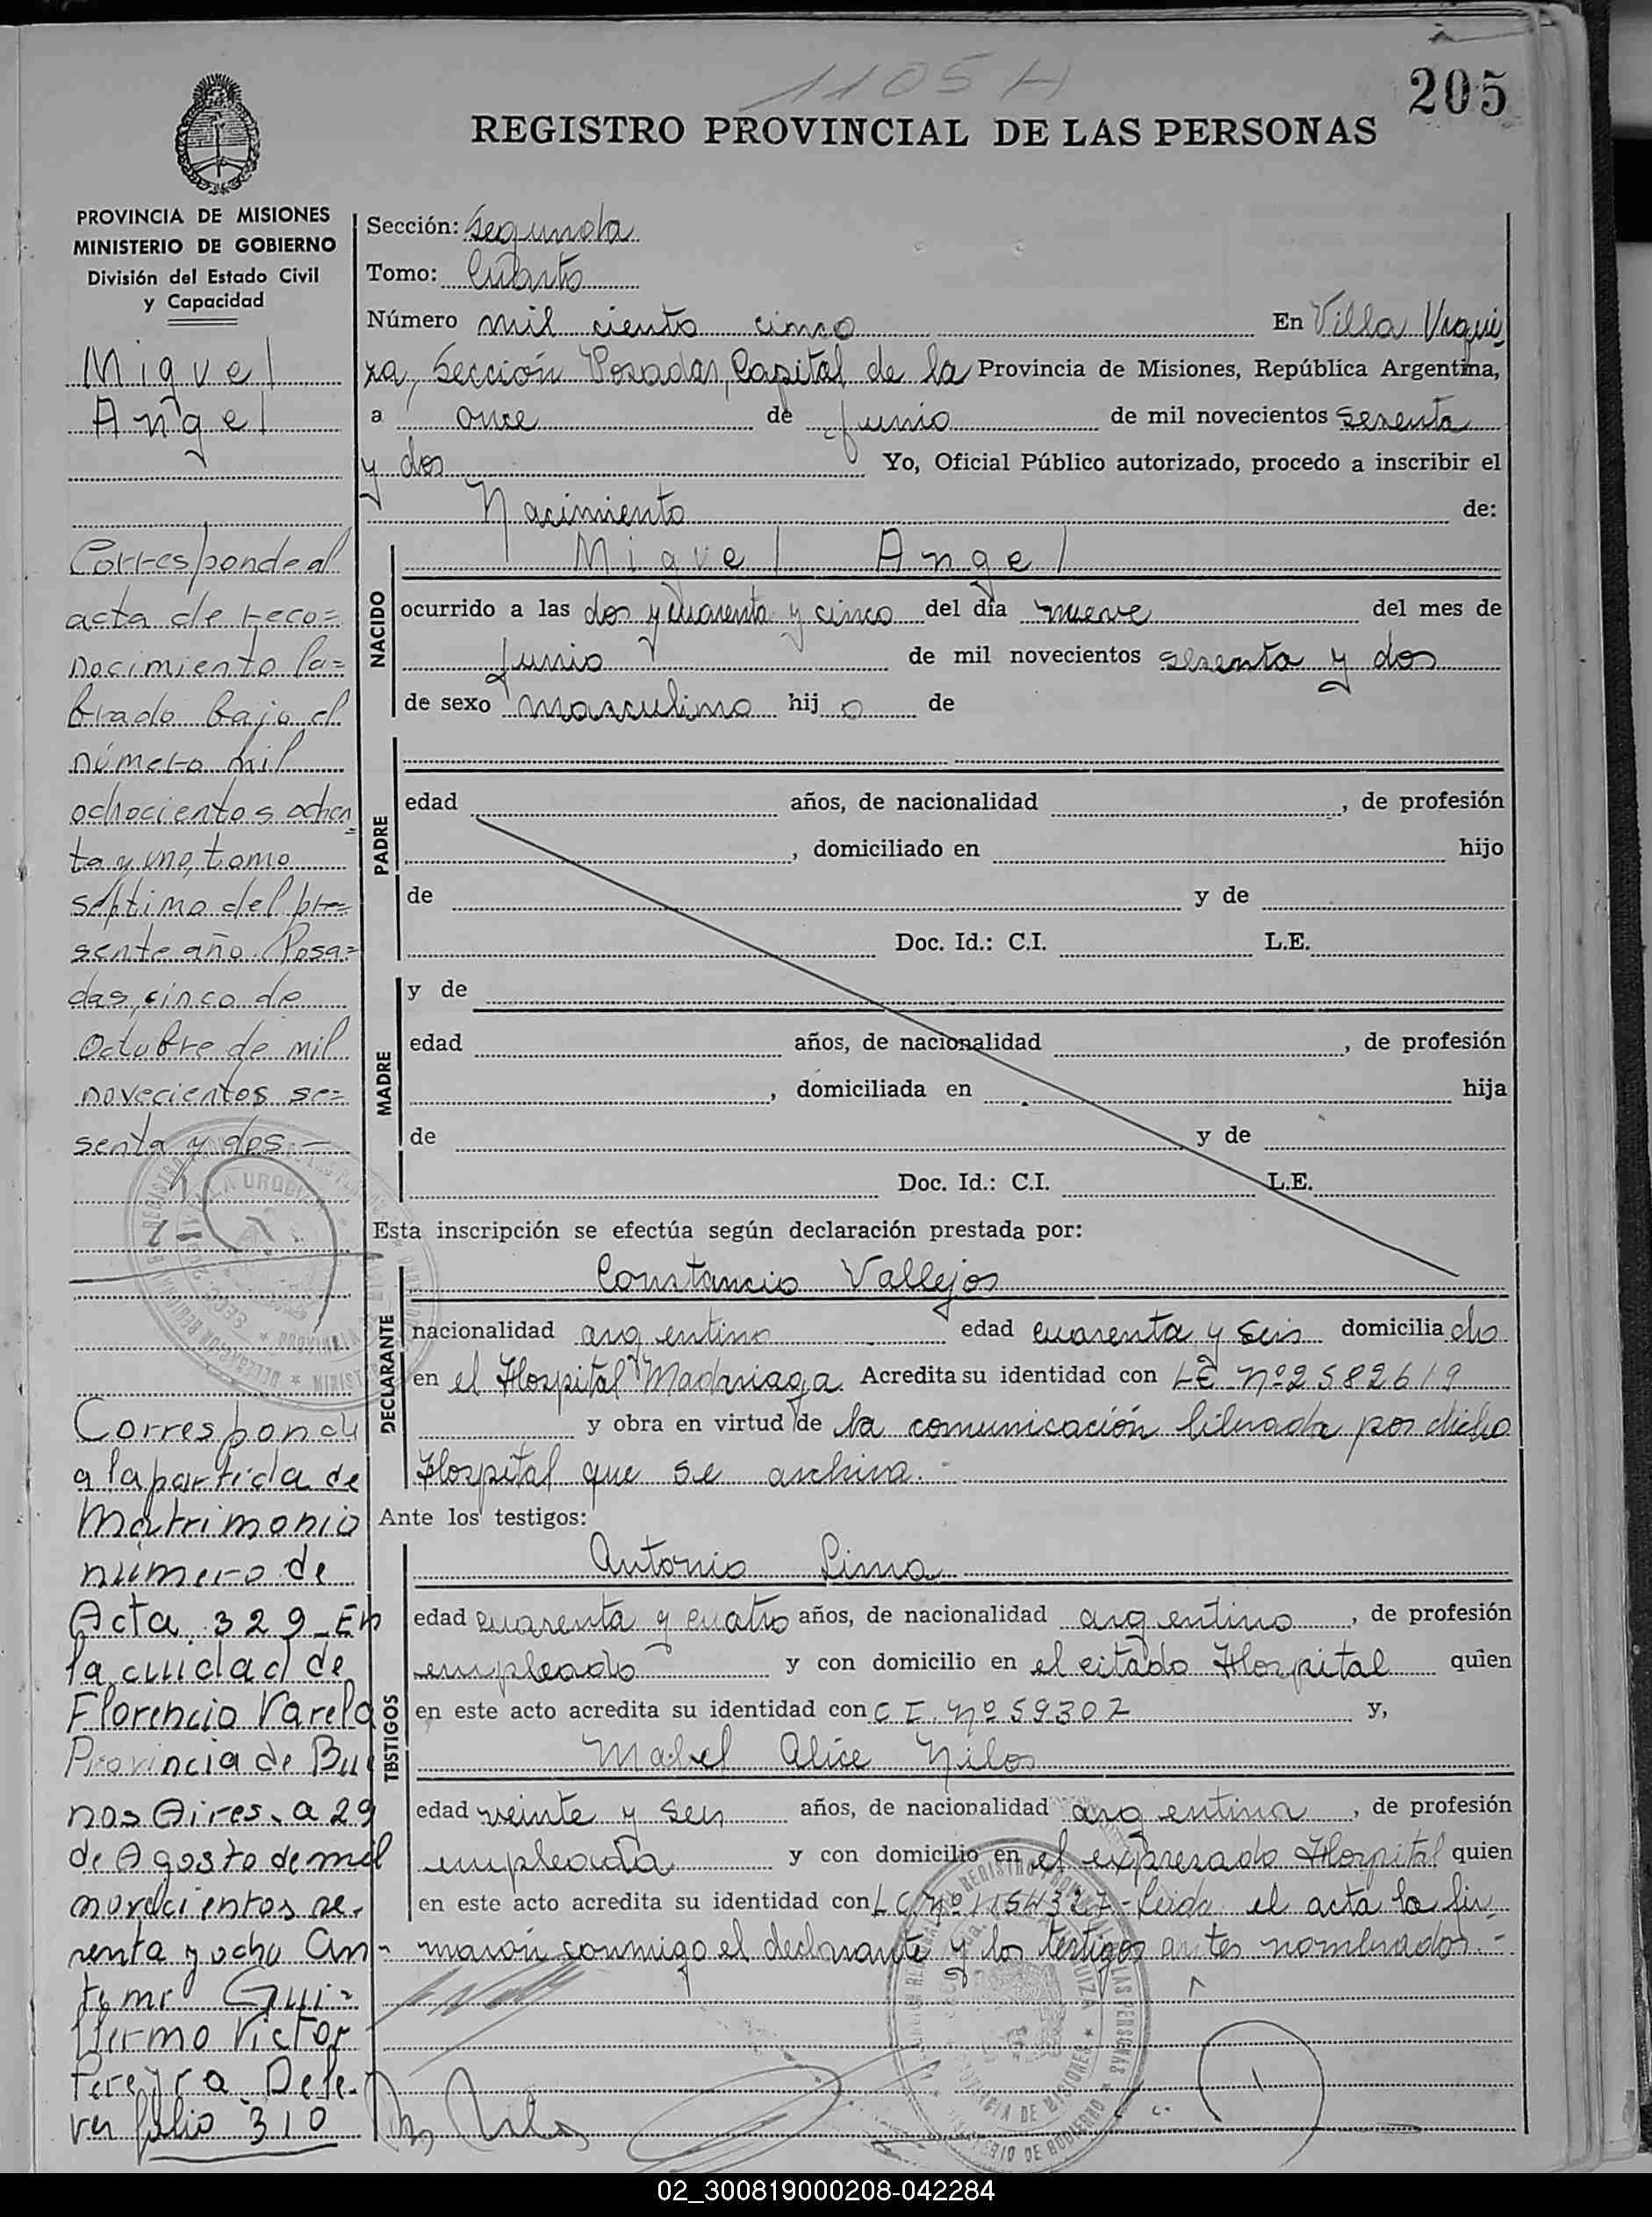 1105 H
205
REGISTRO PROVINCIAL DE LAS PERSONAS
PROVINCIA DE MISIONES
MINISTERIO DE GOBIERNO
División del Estado Civil
y Capacidad
Miguel
Angel
Corresponde al
acta de reco=
nocimiento la=
brado bajo el
número mil
ochocientos ochen=
ta y uno, tomo
séptimo del pre=
sente año. Posa=
das, cinco de
Octubre de mil
novecientos se=
senta y dos.-
Corresponde
a la partida de
Matrimonio
número de
Acta 329 En
la cuidad de
Florencio Varela
Provincia de Bue
nos Aires. a 29
de Agosto de mil
novecientos se-
senta y ocho An-
te mi Gui=
llermo Victor
Pereyra Dele-
ver folio 310
Sección: Segunda
Tomo: Cuarto
Número mil ciento cinco En Villa Urqui-
za, Sección Posadas, Capital de la Provincia de Misiones, República Argentina,
a once de junio de mil novecientos sesenta
y dos Yo, Oficial Público autorizado, procedo a inscribir el
Nacimiento de:
NACIDO
Miguel Angel
ocurrido a las dos y cuarenta y cinco del día nueve del mes de
junio de mil novecientos sesenta y dos
de sexo masculino hij o de
PADRE
edad años, de nacionalidad , de profesión
, domiciliado en hijo
de y de
Doc. Id.: C.I. L.E.
MADRE
y de
edad años, de nacionalidad , de profesión
, domiciliada en hija
de y de
Doc. Id.: C.I. L.E.
Esta inscripción se efectúa según declaración prestada por:
DECLARANTE
Constancio Vallejos
nacionalidad argentino edad cuarenta y seis domicilia do
en el Hospital Madariaga. Acredita su identidad con LE nº 2582619
y obra en virtud de la comunicación librada por dicho
Hospital que se archiva.-
Ante los testigos:
TESTIGOS
Antonio Lima
edad cuarenta y cuatro años, de nacionalidad argentino, de profesión
empleado y con domicilio en el citado Hospital quien
en este acto acredita su identidad con C I. nº 59307 y,
Mabel Alice Nilos
edad veinte y seis años, de nacionalidad argentina, de profesión
empleada y con domicilio en el expresado Hospital quien
en este acto acredita su identidad con L C. nº 1154327-Leida el acta la fir-
maron conmigo el declarante y los testigos antes nombrados.-
02_300819000208-042284